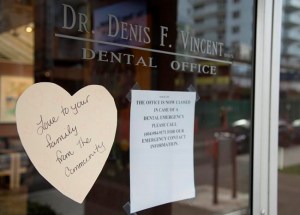 DR. DENIS F. VINCENT
DENTAL OFFICE
Love to your
family
from the
Community
THE OFFICE IS NOW CLOSED
IN CASE OF A
DENTAL EMERGENCY
PLEASE CALL
FOR OUR
EMERGENCY CONTACT
INFORMATION.